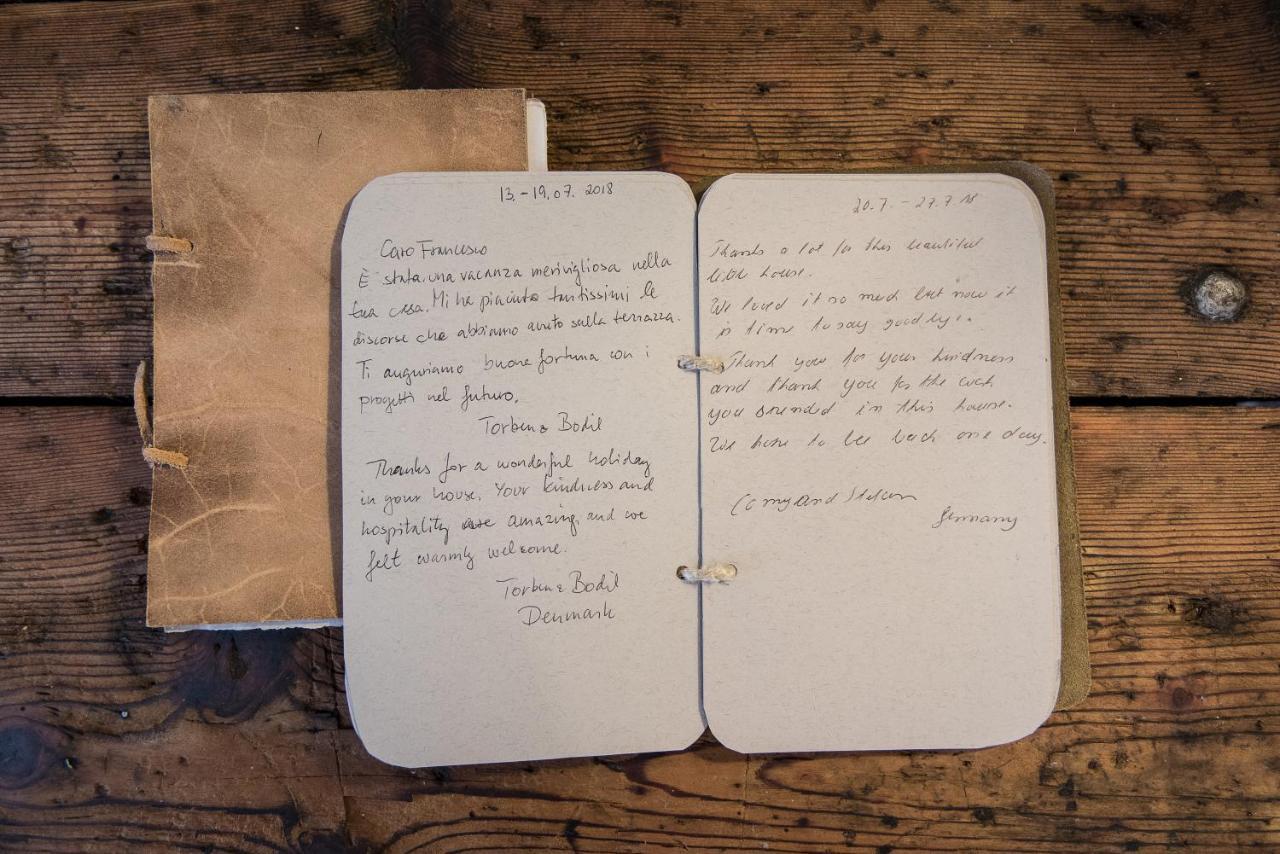 13.-19.07. 2018
Caro Francesco
È stata una vacanza merivigliosa nella
tua casa. Mi ha piaciuto tantissimi le
discorse che abbiamo avuto sulla terrazza.
Ti auguriamo buone fortuna con i
progetti nel futuro.
Torben & Bodil
Thanks for a wonderful holiday
in your house. Your kindness and
hospitality are amazing, and we
felt warmly welcome.
Torben & Bodil
Denmark
20.7. - 27.7.18
Thanks a lot for this beautiful
little house.
We loved it so much but now it
is time to say goodbye.
Thank you for your kindness
and thank you for the
you in this house.
We hope to be back one day.
and
Germany